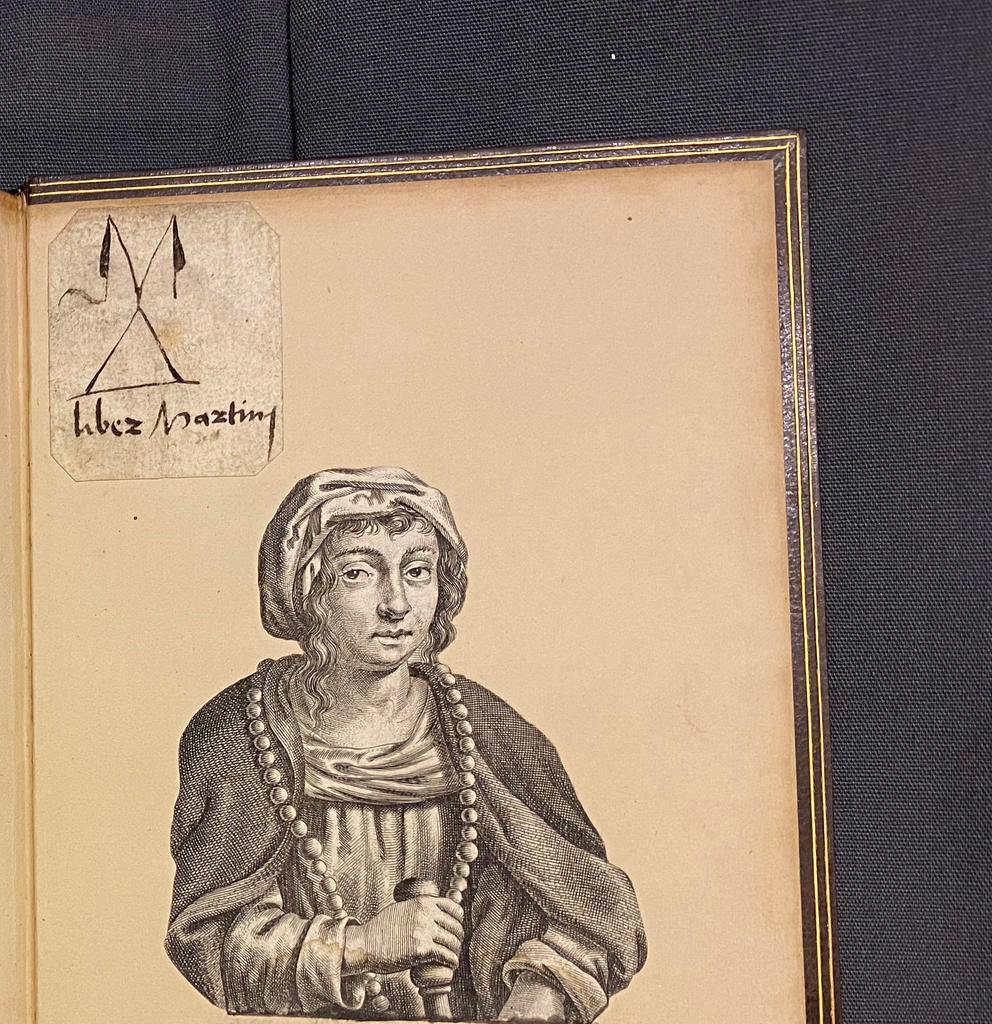 liber Martini